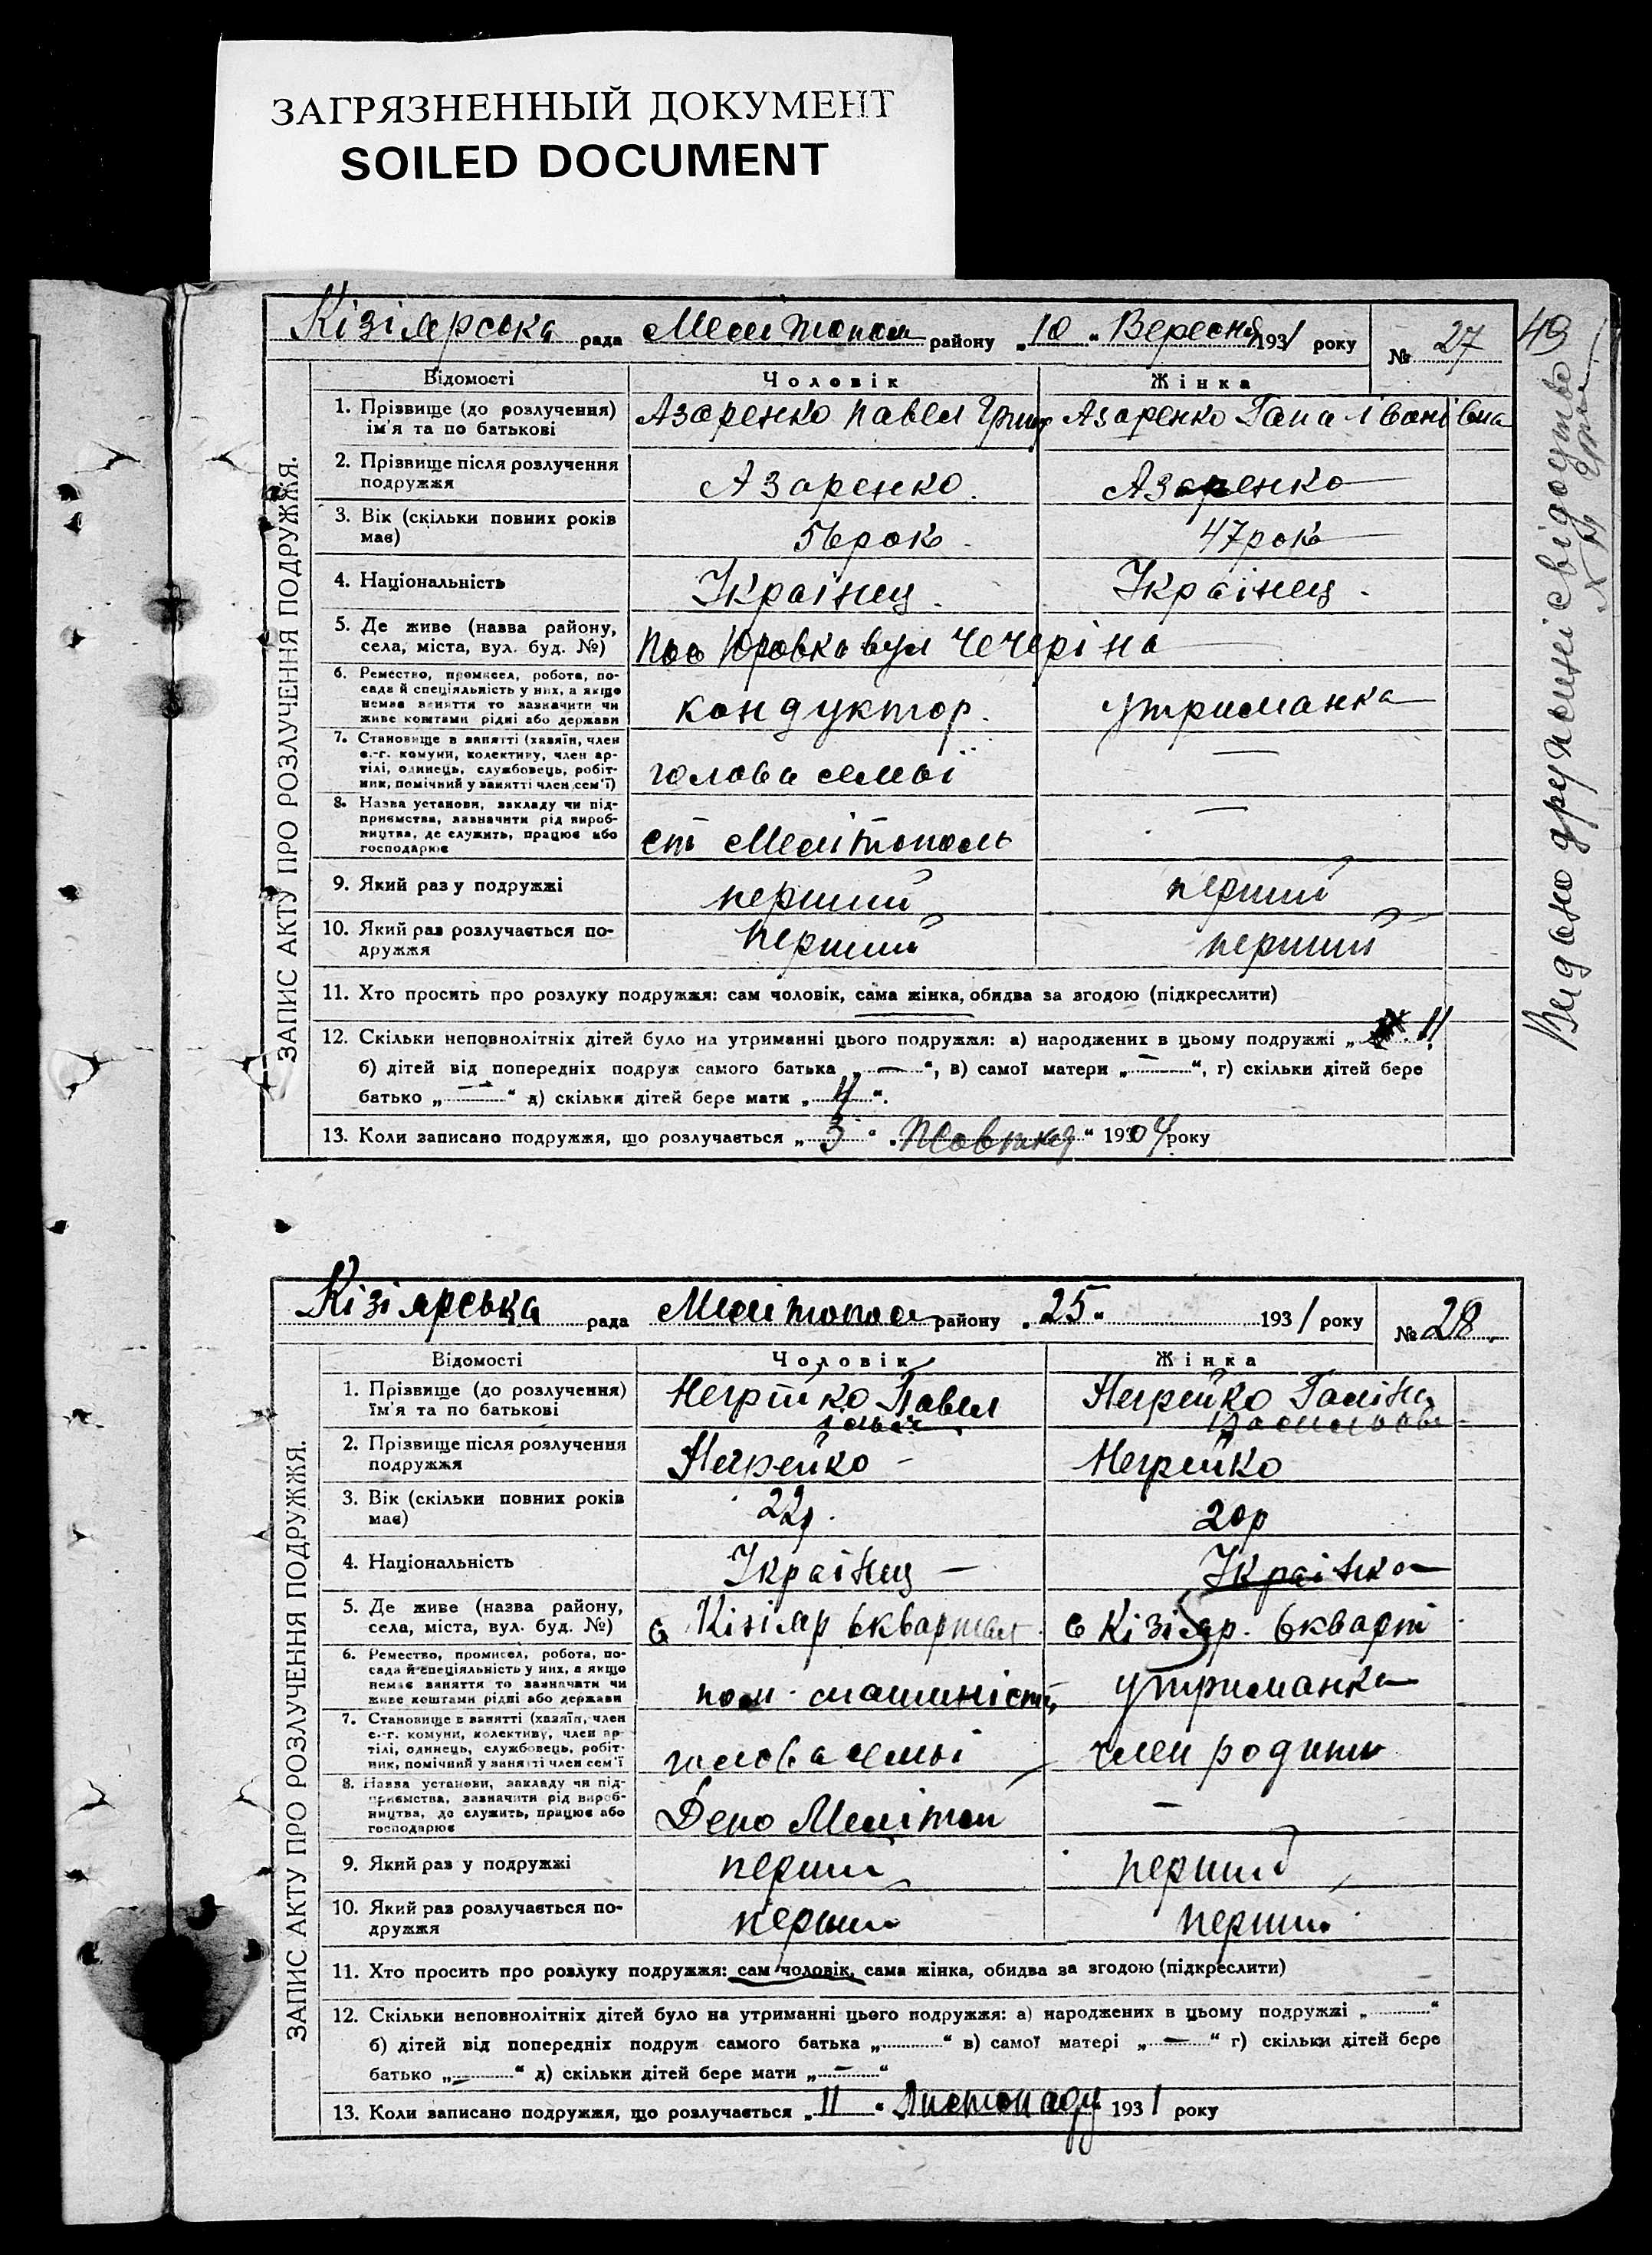 ЗАГРЯЗНЕННЫЙ ДОКУМЕНТ
SOILED DOCUMENT
Кізіярська рада Мелітопол району „10“ Вересня 1931 року № 27
49
Відомості Чоловік Жінка
1. Прізвище (до розлучення) ім'я та по батькові Азаренко Павел Григ Азаренко Гана Іванівна
2. Прізвище після розлучення подружжя Азаренко Азаренко
3. Вік (скільки повних років має) 56 рок 47 рок
4. Національність Україкнец Україінец
5. Де живе (назва району, села, міста, вул. буд. №) Пос Юровка вул Чечеріна
6. Ремество, промисел, робота, посада й спеціяльність у них, а якщо немає заняття то зазначити чи живе коштами рідні або держави кондуктор утриманка
7. Становище в занятті (хазяїн, член с.-г. комуни, колективу, член артілі, одинець, службовець, робітник, помічний у занятті член сем'ї) голова семьї —
8. Назва установи, закладу чи підприємства, зазначити рід виробництва, де служить, працює або господарює ст Мелітополь —
9. Який раз у подружжі перший перший
10. Який раз розлучається подружжя перший перший
11. Хто просить про розлуку подружжя: сам чоловік, сама жінка, обидва за згодою (підкреслити)
12. Скільки неповнолітніх дітей було на утриманні цього подружжя: а) народжених в цьому подружжі „
б) дітей від попередніх подруж самого батька „—“, в) самої матери „—“, г) скільки дітей бере
батько „—“ д) скільки дітей бере мати „
13. Коли записано подружжя, що розлучається „3“ „Жовтня“ 1904 року
ЗАПИС АКТУ ПРО РОЗЛУЧЕННЯ ПОДРУЖЖЯ.
Видано друження свідоцтво
Кізіярська рада Мелітопол району „25“ 1931 року № 28
Відомості Чоловік Жінка
1. Прізвище (до розлучення) їм'я та по батькові Негрейко Павел Ільіч Негрейко Галіна
2. Прізвище після розлучення подружжя Негрейко – Негрейко
3. Вік (скільки повних років має) 22р. 20р
4. Національність Українец — Українка
5. Де живе (назва району, села, міста, вул. буд. №) с Кізіяр 6 квартал с Кізіяр. 6 кварт
6. Ремество, промисел, робота, посада й спеціяльність у них, а якщо немає заняття то зазначити чи живе коштами рідні або держави пом. машиніст утриманка
7. Становище в занятті (хазяїн, член с.-г. комуни, колективу, член артілі, одинець, службовець, робітник, помічний у занятті член сем'ї голова семьі член родини
8. Назва установи, закладу чи підприємства, зазначити рід виробництва, де служить, працює або господарює Депо Мелітоп —
9. Який раз у подружжі перший перший
10. Який раз розлучається подружжя перший перший
11. Хто просить про розлуку подружжя: сам чоловік, сама жінка, обидва за згодою (підкреслити)
12. Скільки неповнолітніх дітей було на утриманні цього подружжя: а) народжених в цьому подружжі „“
б) дітей від попередніх подруж самого батька „“ в) самої матері „—“ г) скільки дітей бере
батько „—“ д) скільки дітей бере мати „—“
13. Коли записано подружжя, що розлучається „11“ Листопаду 1931 року
ЗАПИС АКТУ ПРО РОЗЛУЧЕННЯ ПОДРУЖЖЯ.